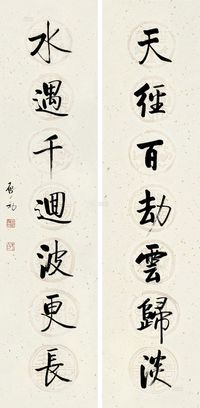 天經百劫雲歸淡
水遇千迴波更長
啟功